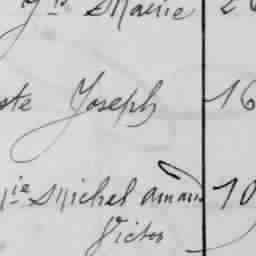 Marie 2
ste Joseph 16
ie Michel amand 10
Victor